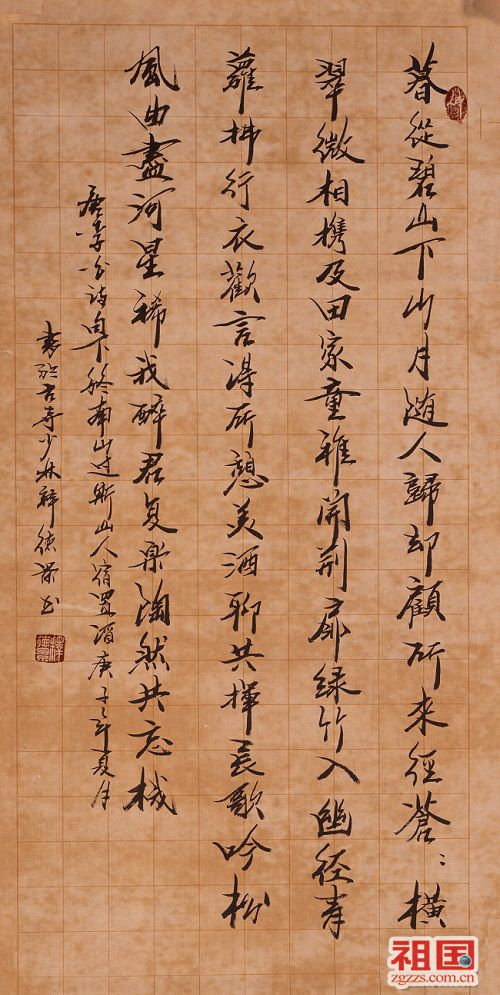 暮從碧山下山月随人歸却顧所来徑蒼〻横
翠微相携及田家童稚開荆扉绿竹入幽徑青
蘿拂行衣歡言得所憩美酒聊共揮長歌吟松
風曲盡河星稀我醉君复乐陶然共忘機
唐李白诗句下終南山过斯山人宿置酒庚子年夏月
古寺少林釋德景书
祖国
zgzzs.com.cn